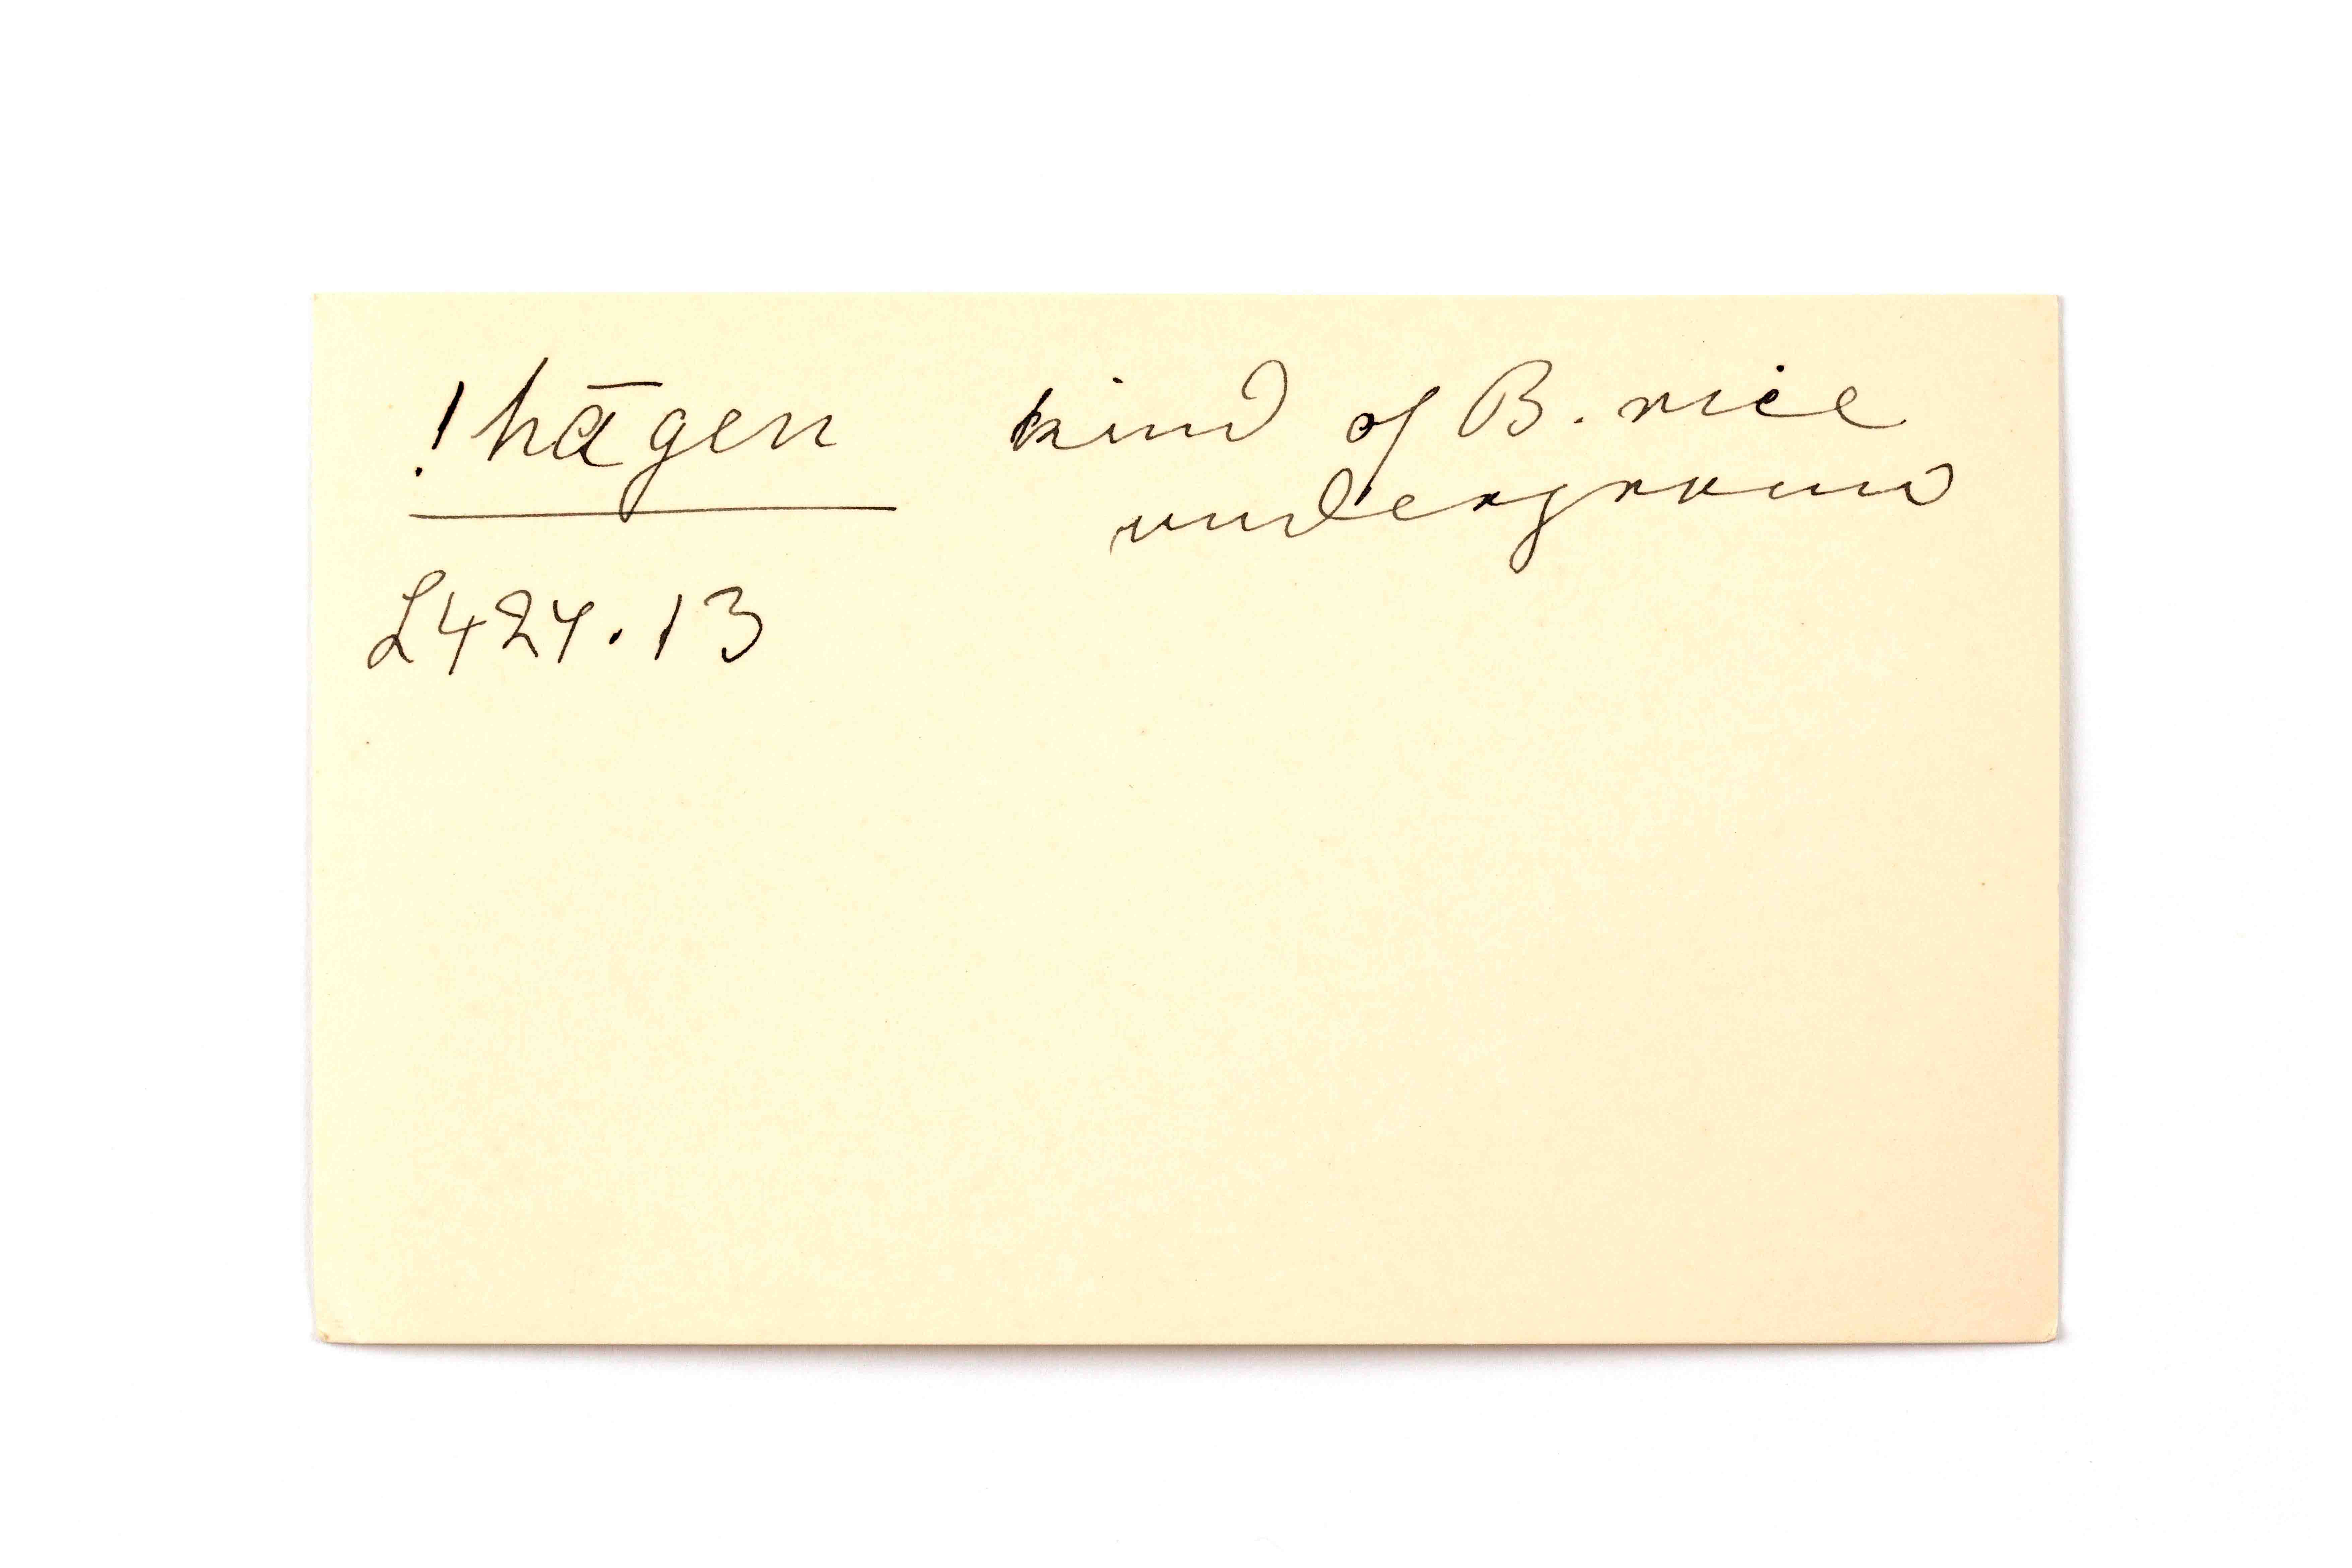 !hāgen kind of B. rice
underground
L424.13